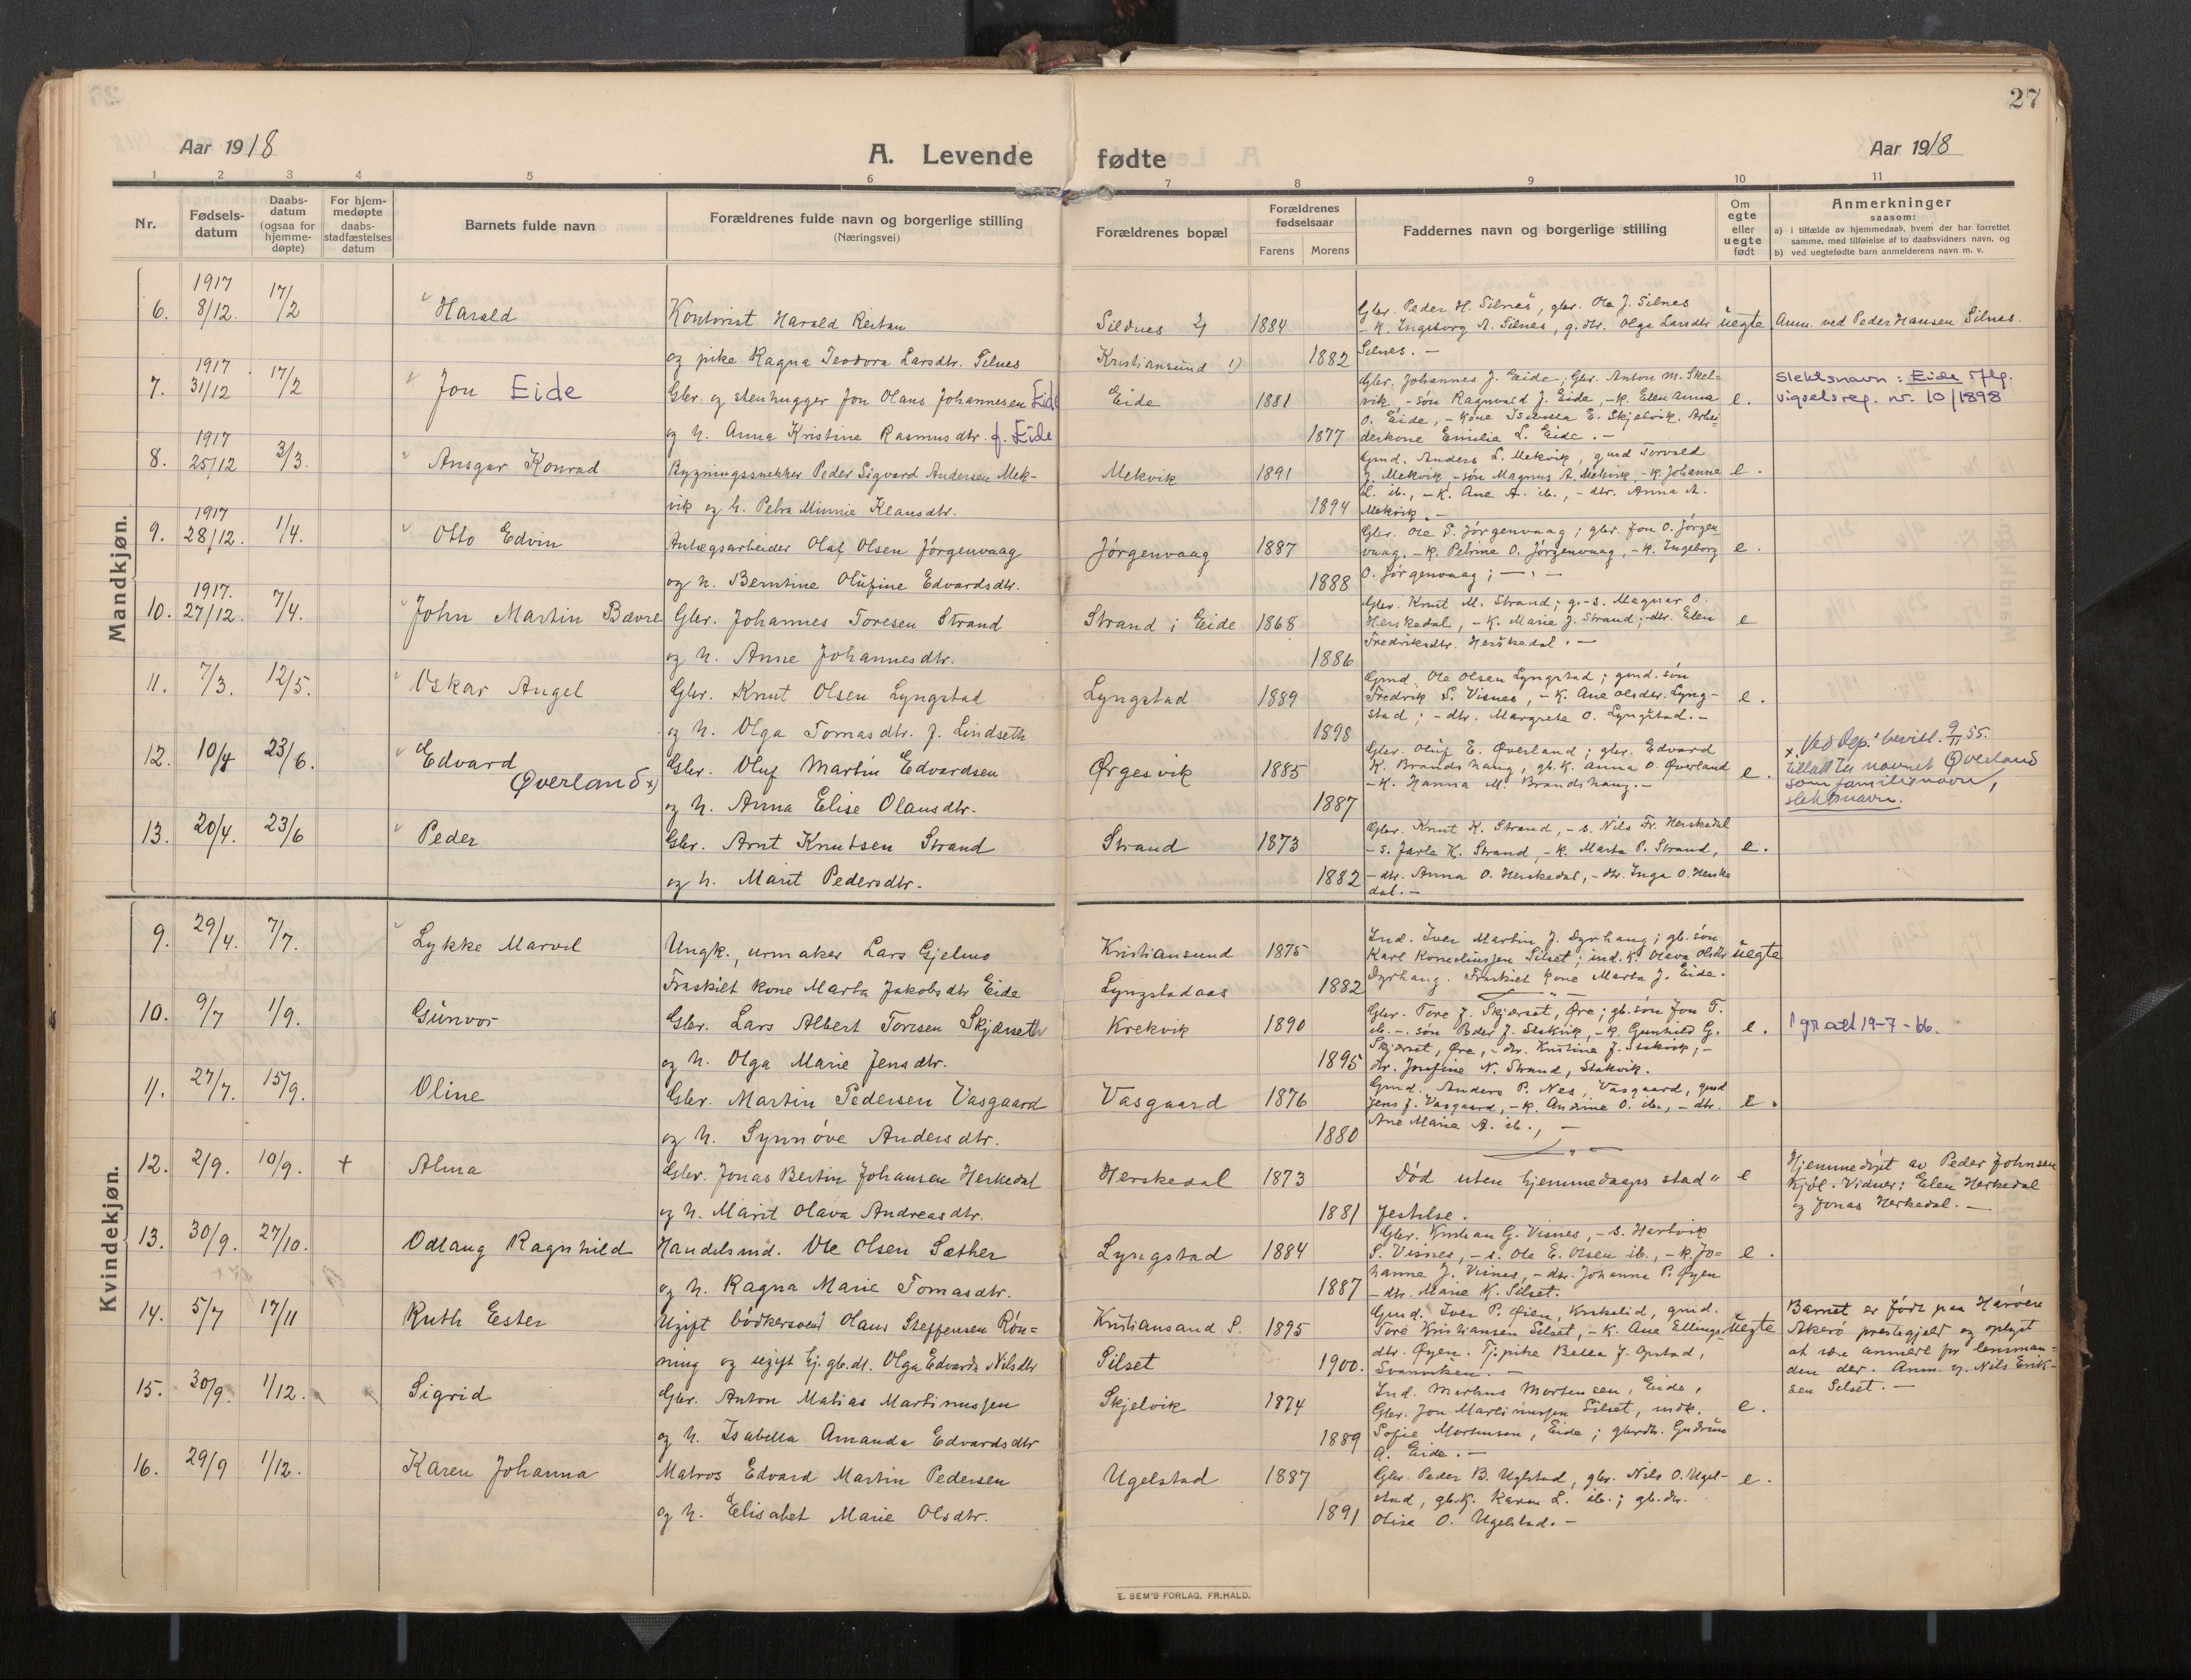 27
Aar 1918
A. Levende fødte
Aar 1918
1 2 3 4 5 6 7 8 9 10 11
Nr.
Fødsels-
datum
Daabs-
datum
(ogsaa for
hjemme-
døpte)
For hjem-
medøpte
daabs-
stadfæstelses
datum
Barnets fulde navn
Forældrenes fulde navn og borgerlige stilling
(Næringsvei)
Forældrenes bopæl
Forældrenes
fødselsaar
Farens Morens
Faddernes navn og borgerlige stilling
Om
egte
eller
uegte
født
Anmerkninger
saasom:
a) i tilfælde av hjemmedaab, hvem der har forrettet
samme, med tilføielse af to daabsvidners navn, og
b) ved uegtefødte barn anmelderens navn m. v.
Mandkjøn.
6. 1917 8/12. 17/2 Harald
Kontorist Harald Restan
og pike Ragna Teodora Larsdtr. Silnes
Sildnes 2)
Kristiansund 1)
1884
1882
Gbr. Peder H. Silnes, gbr. Ola J. Silnes
- k. Ingeborg A. Silnes, g. dtr. Olga Larsdtr
Silnes. -
uegte
Anm. ved Peder Hansen Silnes.
7. 1917 31/12 17/2 Jon Eide
Gbr. og stenhugger Jon Olaus Johannesen Eide
og h. Anna Kristine Rasmusdtr. f. Eide
Eide
1881
1877
Gbr. Johannes J. Eide; Gbr. Anton M. Skel=
vik, - søn Ragnvald J. Eide, - k. Elen Anna
O. Eide, - kone Isabella E. Skjelvik. Arbei
derkone Emilie L. Eide. -
e.
Slektsnavn: Eide iflg.
vigselsreg. nr. 10/1898
8. 1917 25/12 3/3. Ansgar Konrad
Bygningssnekker Peder Sigvard Andersen Mek-
vik og h. Petra Minnie Klausdtr.
Mekvik
1891
1894
Gmd. Anders L. Mekvik, gmd Torvald
J. Mekvik, - søn Magnus A. Mekvik, - k. Johanne
L. ib., - k. Ane A. ib., - dtr. Anna A.
Mekvik. -
e.
9. 1917 28/12. 1/4. Otto Edvin
Anlægsarbeider Olaf Olsen Jörgenvaag
og h. Berntine Olufine Edvardsdtr.
Jørgenvaag
1887
1888
Gbr. Ole P. Jörgenvaag; gbr. Jon O. Jörgen
vaag, - k. Petrine O. Jörgenvaag, - k. Ingeborg
O. Jörgenvaag;
e.
10. 1917. 27/12. 7/4. John Martin Bævre
Gbr. Johannes Toresen Strand
og h. Anne Johannesdtr.
Strand i Eide
1868
1886
Gbr. Knut M. Strand; g.-s. Magnar O.
Herskedal, - k. Marie J. Strand; - dtr. Elen
Fredriksdtr. Herskedal. -
e
11. 7/3. 12/5. Oskar Angel
Gbr. Knut Olsen Lyngstad
og h. Olga Tomasdtr. f. Lindseth
Lyngstad
1889
1898
Gmd. Ole Olsen Lyngstad; gmd. søn
Fredrik S. Visnes, - k. Ane Olsdtr. Lyng-
stad; - dtr. Margrete O. Lyngstad. -
e.
12. 10/4 23/6. Edvard
Øverland x)
Gbr. Oluf Martin Edvardsen
og h. Anna Elise Olausdtr.
Ørgesvik
1885
1887
Gbr. Oluf E. Øverland; gbr. Edvard
K. Brandshaug, gb. k. Anna O. Øverland
- k. Hanna M. Brandshaug. -
e.
x Ved Dep.s bevill. 9/11 55.
tillatt ta navnet Øverland
som familienavn,
slektsnavn.
13. 20/4. 23/6 Peder
Gbr. Arnt Knutsen Strand
og h. Marit Pedersdtr.
Strand
1873
1882
Gbr. Knut K. Strand, - s. Nils Fr. Herskedal
- s. Jarle K. Strand, - k. Marta P. Strand,
- dtr. Anna O. Herskedal, - dtr. Inga O. Herske
dal. -
e.
Kvindekjøn.
9. 29/4. 7/7. Lykke Marvel
Ungk., urmaker Lars Gjelmo
Fraskilt kone Marta Jakobsdtr Eide
Kristiansund
Lyngstadaas
1875
1882
Ind. Iver Martin J. Dyrhaug; gb. søn
Karl Korneliussen Silset; ind. k. Olava Olsdtr
Dyrhaug. Fraskilt kone Marta J. Eide.
uegte
10. 9/7 1/9. Gunvor
Gbr. Lars Albert Toresen Skjærseth
og h. Olga Marie Jensdtr.
Krekvik
1890
1895
Gbr. Tore J. Skjærset, Øre; gb. søn Jon T.
ib. -. søn Peder J. Stokvik, - k. Gunhild G.
Skjærset, Øre, - dtr. Kristine J. Stokvik, -
dtr. Josefine N. Strand, Stokvik.
e.
19-7-66.
11. 27/7. 15/9. Oline
Gbr. Martin Pedersen Vasgaard
og h. Synnöve Andersdtr.
Vasgaard
1876
1880
Gmd. Anders P. Nes, Vasgaard, gmd
Jens J. Vasgaard, - k. Andrine O. ib., - dtr.
Ane Marie A. ib., -
e.
12. 2/9. 10/9. + Alma
Gbr. Jonas Bertin Johansen Herkedal
og h. Marit Olava Andreasdtr.
Herskedal
1873
1881
Død uten hjemmedaaps stad"
festelse.
e
Hjemmedøpt av Peder Johnsen
Kjöl. Vidner: Elen Herkedal
og Jonas Herkedal. -
13. 30/9. 27/10. Odlaug Ragnhild
Handelsmd. Ole Olsen Sæther
og h. Ragna Marie Tomasdtr.
Lyngstad
1884
1887
Gbr. Kristian G. Visnes, - s. Hartvik
S. Visnes, - s. Ole E. Olsen ib., - k. Jo=
hanne J. Visnes, - dtr. Johanna P. Øyen
- dtr. Marie K. Silset.
e.
14. 5/7 17/11 Ruth Ester
Ugift bödkersvend Hans Steffensen Rön=
ning og ugift Ej. gb. dt. Olga Edvarda Nilsdtr
Kristiansand S.
Silset
1895
1900.
Gmd. Iver P. Øien, gmd.
Tore Kristiansen Silset, - k. Ane Ellings
dtr. Øyen. Tj. pike Bella J. Opstad,
Svanviken. -
uegte
Barnet er født paa Haröen
Akerö prestegjeld og oplyst
at være anmeldt for lensman=
den der. Anm. v. Nils Erik-
sen Silset. -
15. 30/9. 1/12. Sigrid
Gbr. Anton Matias Martinussen
og h. Isabella Amanda Edvardsdtr
Skjelvik
1874
1889
Ind. Markus Mortensen, Eide,
Gbr. Jon Martinussen Silset, indk.
Sofie Mortensen, Eide; gbrdtr. Gudrun
A. Eide. -
e.
16. 29/9 1/12. Karen Johanna
Matros Edvard Martin Pedersen
og h. Elisabet Marie Olsdtr.
Ugelstad
1887
1891
Gbr. Peder B. Uglstad, gbr. Nils O. Ugel-
stad, gb. k. Karen L. ib.; gb. dtr.
Olise O. Ugelstad. -
e.
E. SEM'S FORLAG, FR.HALD.